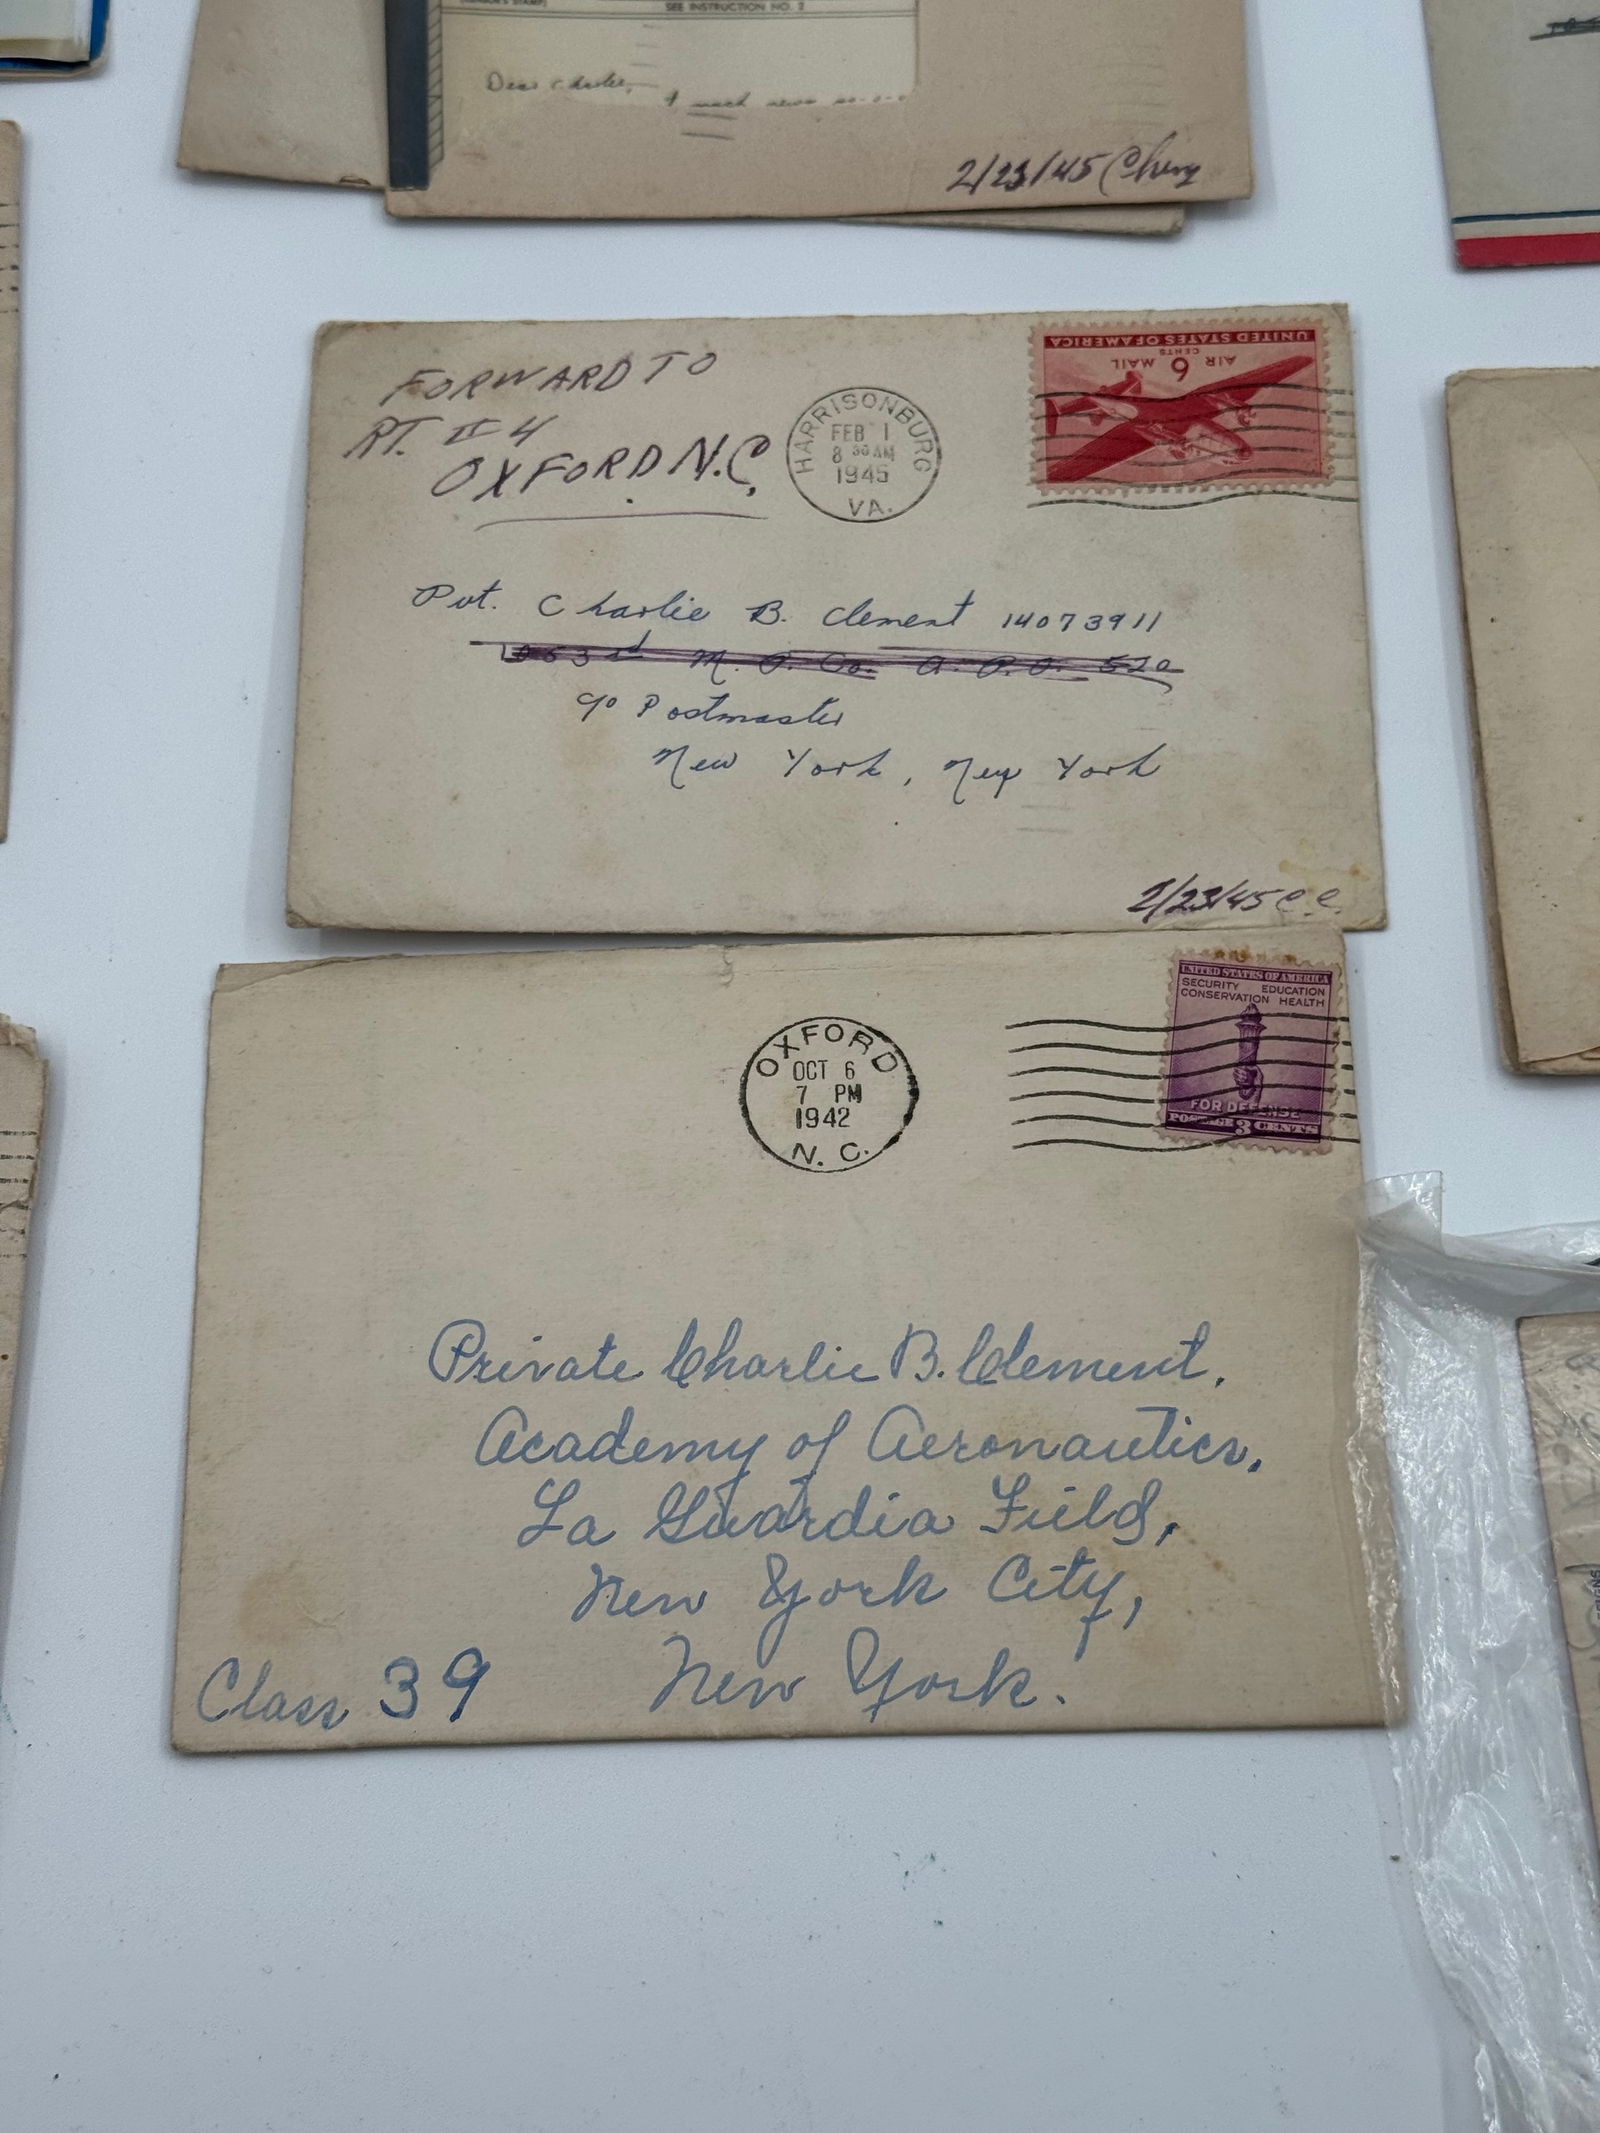 SEE INSTRUCTION NO. 2
Dear Charlie,
much news
2/23/45
FORWARD TO
RT. #4
OXFORD N.C.
HARRISONBURG
FEB 1
8 30 AM
1945
VA.
UNITED STATES OF AMERICA
AIR 6 MAIL
CENTS
Pvt. Charlie B. Clement 14073911
M. P. Co. A.P.O. 520
c/o Postmaster
New York, New York
2/23/45 C.C.
OXFORD
OCT 6
7 PM
1942
N. C.
UNITED STATES OF AMERICA
SECURITY EDUCATION
CONSERVATION HEALTH
FOR DEFENSE
POSTAGE 3 CENTS
Private Charlie B. Clement,
Academy of Aeronautics,
La Guardia Field,
New York City,
Class 39 New York.